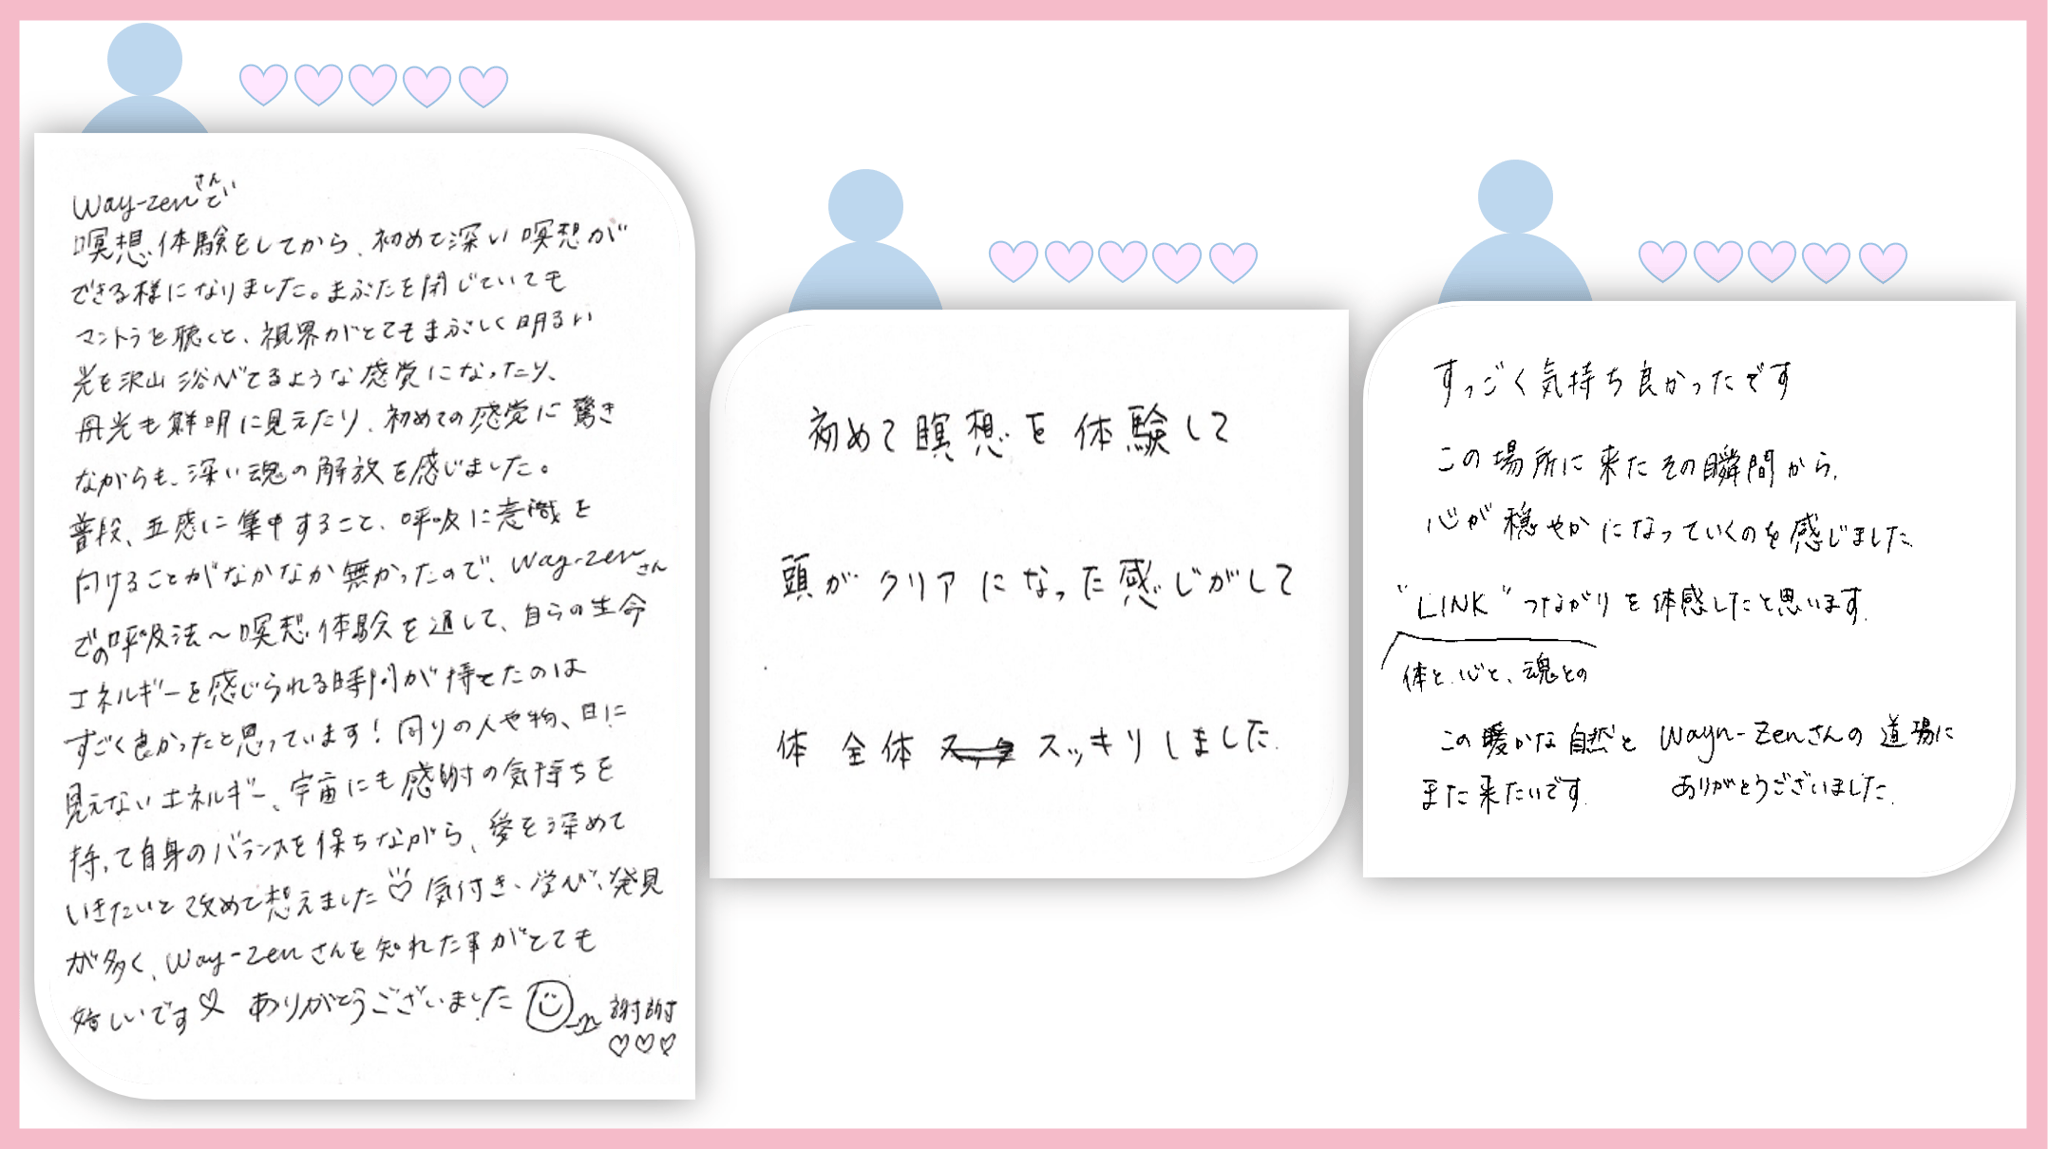 Way-zenさんで
瞑想体験をしてから、初めて深い瞑想が
できる様になりました。まぶたを閉じていても
マントラを聴くと、視界がとてもまぶしく明るい
光を沢山浴びてるような感覚になったり、
丹光も鮮明に見えたり、初めての感覚に驚き
ながらも、深い魂の解放を感じました。
普段、五感に集中すること、呼吸に意識を
向けることがなかなか無かったので、Way-zenさん
での呼吸法〜瞑想体験を通して、自らの生命
エネルギーを感じられる時間が持てたのは
すごく良かったと思っています！周りの人や物、目に
見えないエネルギー、宇宙にも感謝の気持ちを
持って自身のバランスを保ちながら、愛を深めて
いきたいと改めて想えました♡気付き、学び、発見
が多く、Way-zenさんを知れた事がとても
嬉しいです♡ ありがとうございました 謝謝
♡♡♡
初めて瞑想を体験して
頭がクリアになった感じがして
体全体 スッキリしました。
すっごく気持ち良かったです
この場所に来たその瞬間から、
心が穏やかになっていくのを感じました。
"LINK"つながりを体感したと思います。
体と、心と、魂との
この暖かな自然とWayn-Zenさんの道場に
また来たいです。 ありがとうございました。